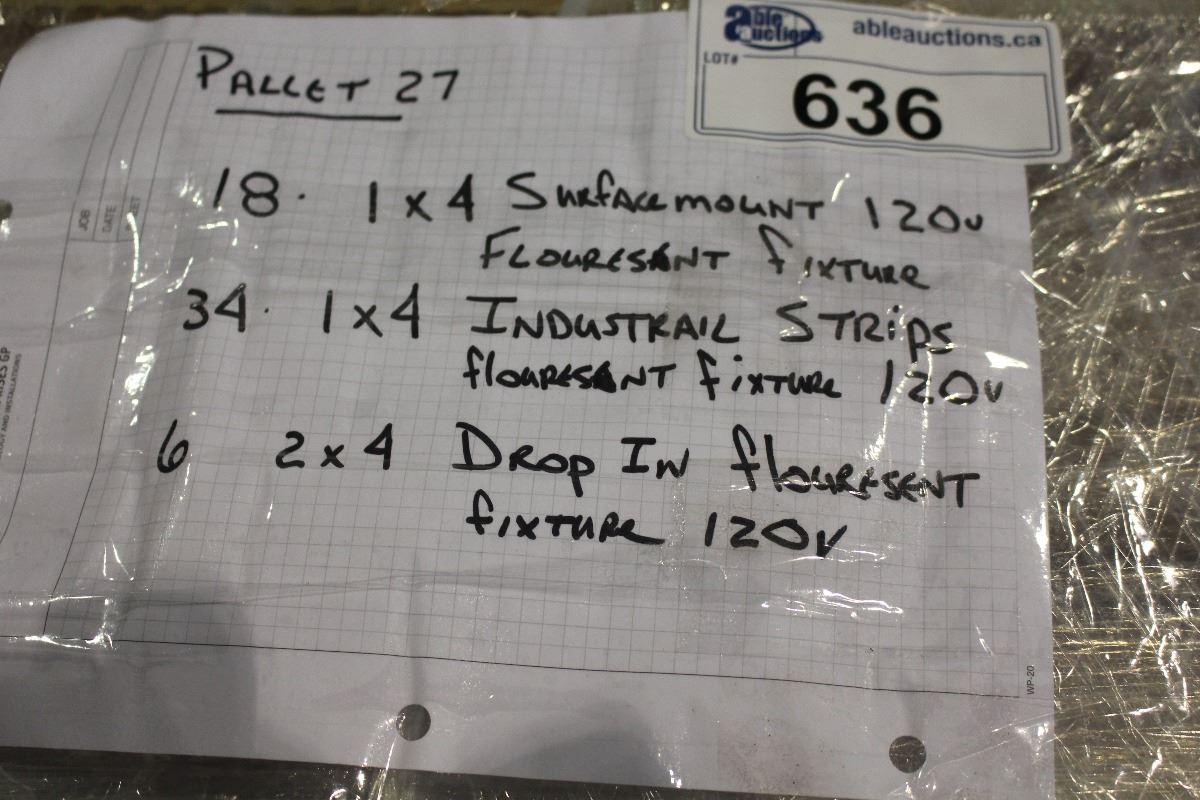 able auctions ableauctions.ca
LOT#
636
PALLET 27
18. 1 x 4 SURFACEMOUNT 120v
FLOURESANT fixTURE
34. 1 x 4 INDUSTRAIL STRiPS
flOURESANT fixTURE 120v
6 2 x 4 DROP IN flOURESENT
fixTURE 120v
JOB
DATE
WP-20